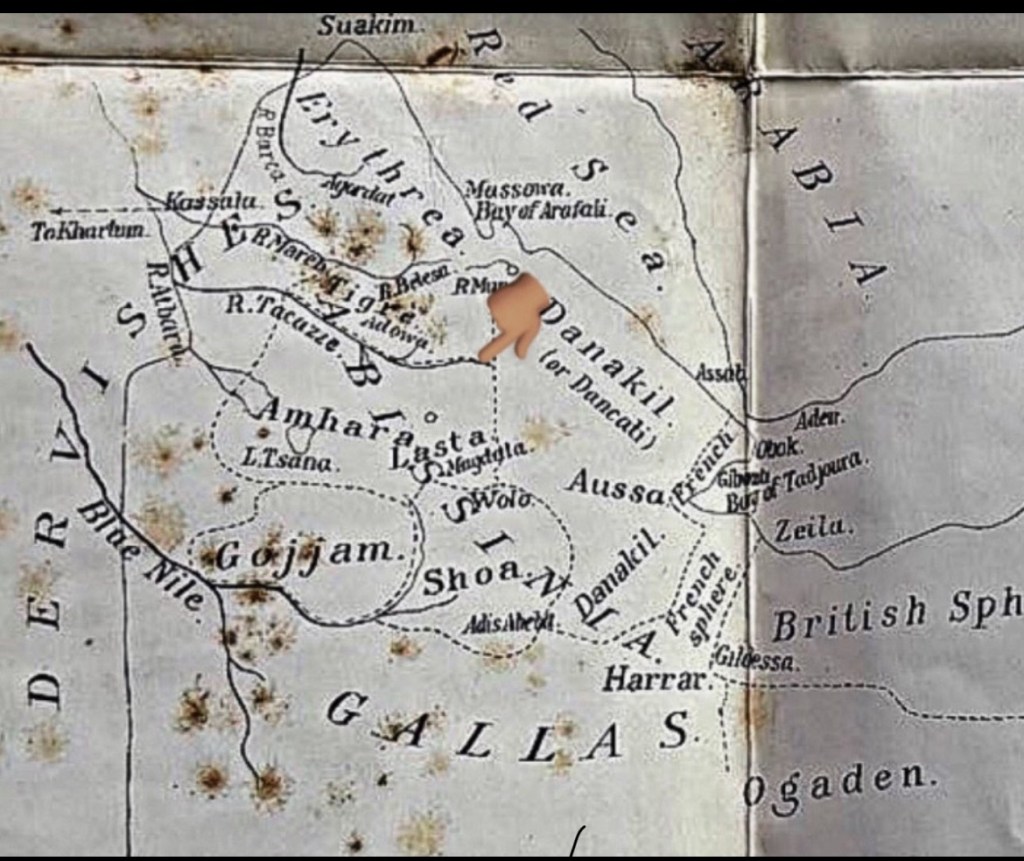 Suakim.
Red Sea.
ARABIA
Erythrea.
R Barca
Agordat
Kassala.
To Khartum.
Massowa.
Bay of Arafali.
DERVISHES.
R Mareb
R. Belesa
R Mun
Tigré
Adowa.
R. Tacazze.
R. Atbara
ABISSINIA.
Danakil.
(or Dancali)
Assab
Aden.
Obok.
French
Bay of Tadjoura.
Amhara
Lasta.
L. Tsana.
Magdala.
Wolo
Aussa.
Zeila.
Gojjam.
Blue Nile.
Shoa.
Danakil.
French
sphere.
Adis Abeba.
British Sph
Gildessa.
Harrar.
GALLAS.
Ogaden.